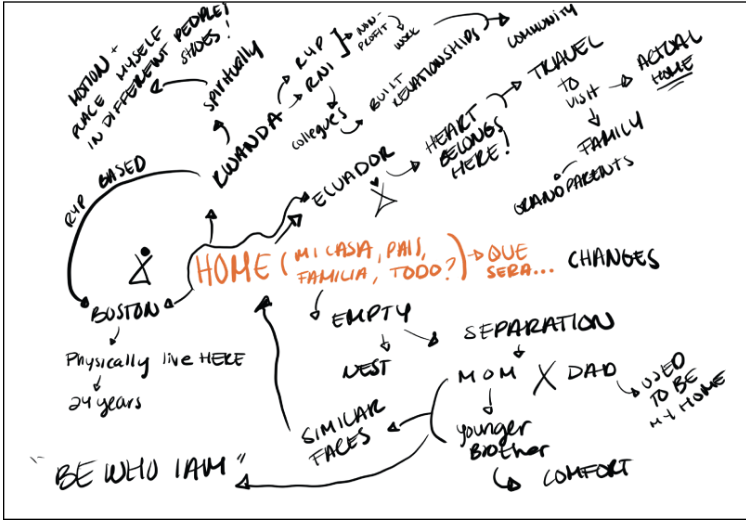 MOTION +
PLACE MYSELF
IN DIFFERENT PEOPLE'S
SHOES!
SPIRITUALLY
RWANDA
RYP
RNI
NON-
PROFIT
WORK
collegues
BUILT
RELATIONSHIPS
COMMUNITY
RYP BASED
ECUADOR
HEART
BELONGS
HERE!
TRAVEL
TO
VISIT
ACTUAL
HOME
FAMILY
GRANDPARENTS
HOME (MI CASA, PAIS,
FAMILIA, TODO?)
QUE
SERA...
CHANGES
BOSTON
Physically live HERE
24 years
EMPTY
NEST
SEPARATION
MOM X DAD
USED
TO BE
MY HOME
younger
Brother
COMFORT
SIMILAR
FACES
"BE WHO I AM"